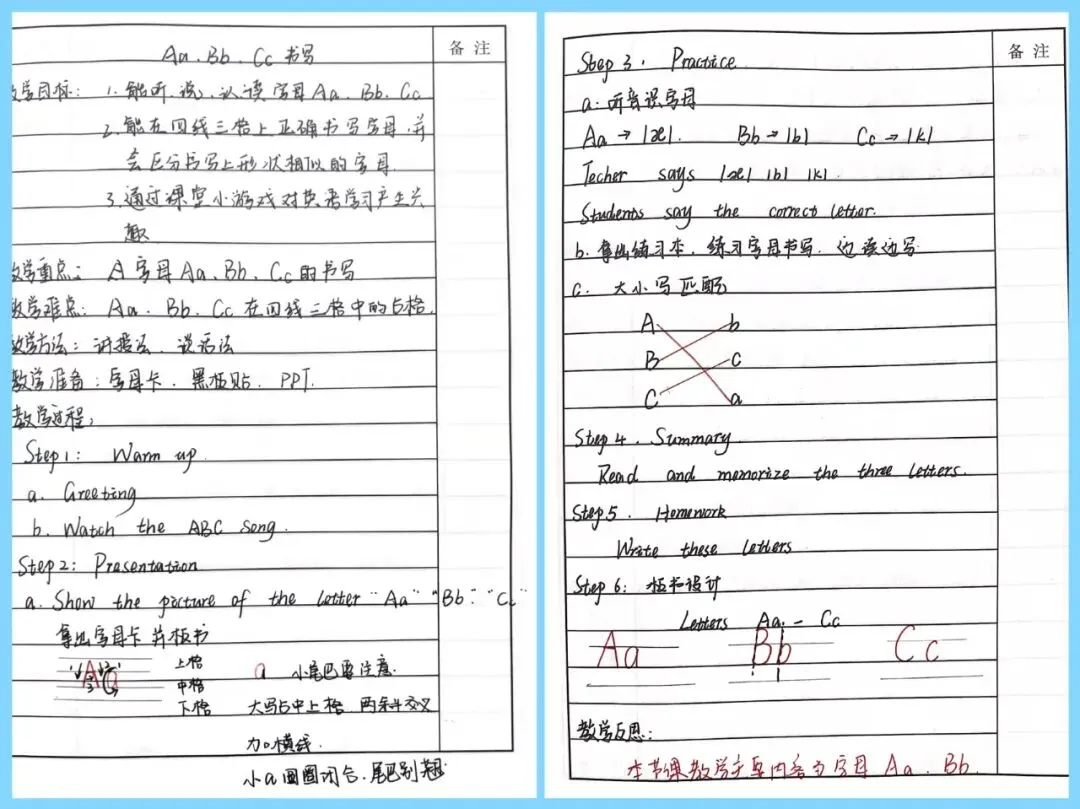 Aa、Bb、Cc 书写
备注
教学目标：1. 能听、说、认读字母 Aa、Bb、Cc
2. 能在四线三格上正确书写字母，并
会区分书写上形状相似的字母.
3. 通过课堂小游戏对英语学习产生兴
趣
教学重点：字母 Aa、Bb、Cc 的书写
教学难点：Aa、Bb、Cc 在四线三格中的占格.
教学方法：讲授法、说话法
教学准备：字母卡、黑板贴、PPT.
教学过程：
Step 1: Warm up.
a. Greeting
b. Watch the ABC song.
Step 2: Presentation
a. Show the picture of the letter "Aa" "Bb" "Cc"
拿出字母卡并板书
Aa
上格
中格
下格
a 小尾巴要注意.
大写占中上格，两条斜交叉
加横线.
小a圆圈闭合，尾巴别翘
备注
Step 3. Practice.
a. 听音识字母
Aa → |æ|. Bb → |b| Cc → |k|
Techer says |æ| |b| |k|.
Students say the correct letter.
b. 拿出练习本，练习字母书写，边读边写.
c. 大小写匹配
A b
B c
C a
Step 4. Summary.
Read and memorize the three letters.
Step 5. Homework
Write these letters
Step 6: 板书设计
Letters Aa - Cc
Aa Bb Cc
教学反思：
本节课教学主要内容为字母 Aa、Bb、